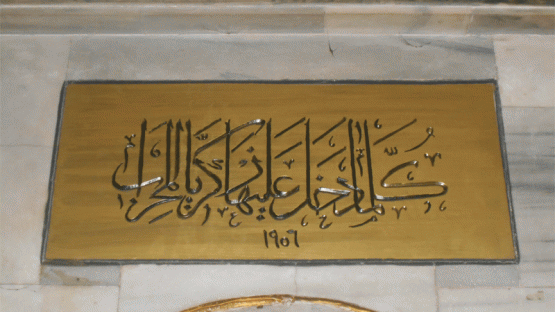 كُلَّمَا دَخَلَ عَلَيْهَا زَكَرِيَّا الْمِحْرَابَ
١٩٥٦